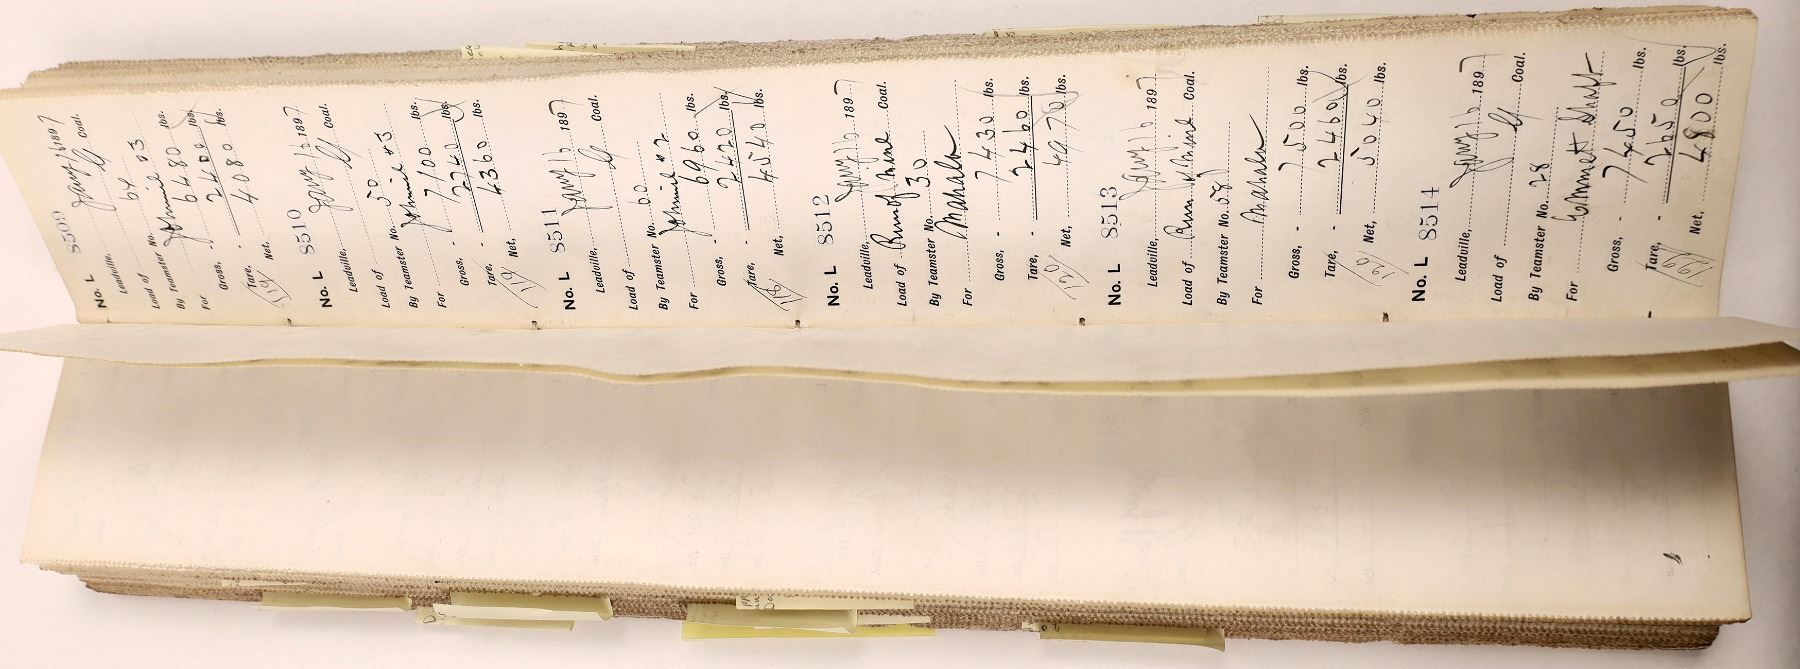 No. L 8509
Leadville, Jany 16 1897
Load of Coal.
By Teamster No. 64
For Johnnie #3
Gross, - 6480 lbs.
Tare, - 2400 lbs.
Net, 4080 lbs.
119
No. L 8510
Leadville, Jany 16 1897
Load of Coal.
By Teamster No. 50
For Johnnie #3
Gross, - 7100 lbs.
Tare, - 2740 lbs.
Net, 4360 lbs.
119
No. L 8511
Leadville, Jany 16 1897
Load of Coal.
By Teamster No. 60
For Johnnie #2
Gross, - 6960 lbs.
Tare, 2420 lbs.
Net, 4540 lbs.
118
No. L 8512
Leadville, Jany 16 1897
Load of Run of Mine Coal.
By Teamster No. 30
For Mahala
Gross, - 7430 lbs.
Tare, - 2460 lbs.
Net, 4970 lbs.
120
No. L 8513
Leadville, Jany 16 1897
Load of Run of Mine Coal.
By Teamster No. 58
For Mahala
Gross, - 7500 lbs.
Tare, - 2460 lbs.
Net, 5040 lbs.
120
No. L 8514
Leadville, Jany 16 1897
Load of Coal.
By Teamster No. 28
For Emmett Shaft
Gross, - 7450 lbs.
Tare, - 2650 lbs.
Net, 4800 lbs.